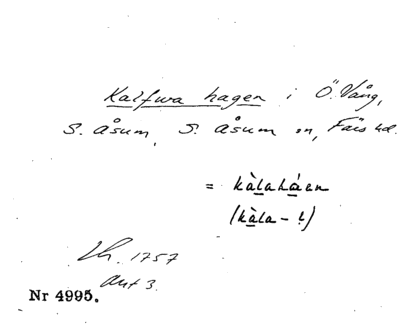 Kalfwa hagen i Ö. Vång,
S. Åsum, S. Åsum sn, Färs hd.
= kàlaháen
(kàla - !)
Lh. 1757
Akt 3.
Nr 4995.